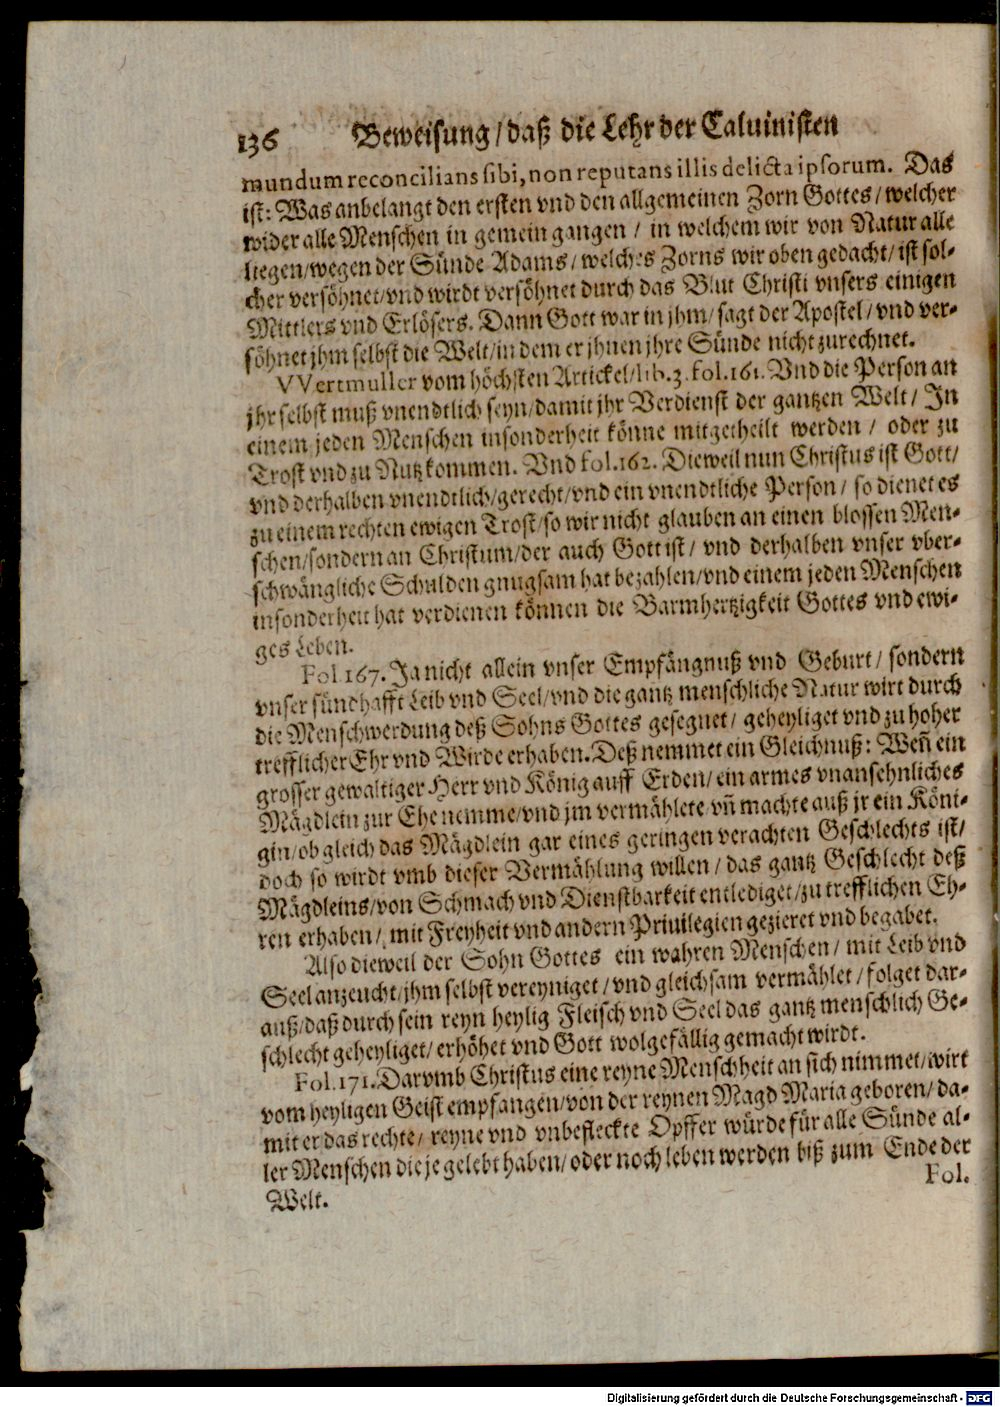 136 Beweisung / daß die Lehr der Caluinisten
mundum reconcilians sibi, non reputans illis delicta ipsorum. Das
ist: Was anbelangt den ersten vnd den allgemeinen Zorn Gottes / welcher
wider alle Menschen in gemein gangen / in welchem wir von Natur alle
liegen / wegen der Sünde Adams / welches Zorns wir oben gedacht / ist sol-
cher versöhnet / vnd wirdt versöhnet durch das Blut Christi vnsers einigen
Mittlers vnd Erlösers. Dann Gott war in jhm / sagt der Apostel / vnd ver-
söhnet jhm selbst die Welt / in dem er jhnen jhre Sünde nicht zurechnet.
VVertmuller vom höchsten Artickel / lib. 3. fol. 161. Vnd die Person an
jhr selbst muß vnendtlich seyn / damit jhr Verdienst der gantzen Welt / In
einem jeden Menschen insonderheit könne mitgetheilt werden / oder zu
Trost vnd zu Nutz kommen. Vnd fol. 162. Dieweil nun Christus ist Gott /
vnd derhalben vnendtlich / gerecht / vnd ein vnendtliche Person / so dienet es
zu einem rechten ewigen Trost / so wir nicht glauben an einen blossen Men-
schen / sondern an Christum / der auch Gott ist / vnd derhalben vnser vber-
schwängliche Schulden gnugsam hat bezahlen / vnd einem jeden Menschen
insonderheit hat verdienen können die Barmhertzigkeit Gottes vnd ewi-
ges Leben.
Fol. 167. Ja nicht allein vnser Empfängnuß vnd Geburt / sondern
vnser sündhafft Leib vnd Seel / vnd die gantz menschliche Natur wirt durch
die Menschwerdung deß Sohns Gottes gesegnet / geheyliget vnd zu hoher
trefflicher Ehr vnd Wirde erhaben. Deß nemmet ein Gleichnuß: Weñ ein
grosser gewaltiger Herr vnd König auff Erden / ein armes vnansehnliches
Mägdlein zur Ehe nemme / vnd jm vermählete vñ machte auß jr ein Köni-
gin / ob gleich das Mägdlein gar eines geringen verachten Geschlechts ist /
doch so wirdt vmb dieser Vermählung willen / das gantz Geschlecht deß
Mägdleins / von Schmach vnd Dienstbarkeit entlediget / zu trefflichen Eh-
ren erhaben / mit Freyheit vnd andern Priuilegien gezieret vnd begabet.
Also dieweil der Sohn Gottes ein wahren Menschen / mit Leib vnd
Seel anzeucht / jhm selbst vereyniget / vnd gleichsam vermählet / folget dar-
auß / daß durch sein reyn heylig Fleisch vnd Seel das gantz menschlich Ge-
schlecht geheyliget / erhöhet vnd Gott wolgefällig gemacht wirdt.
Fol. 171. Darvmb Christus eine reyne Menschheit an sich nimmet / wirt
vom heyligen Geist empfangen / von der reynen Magd Maria geboren / da-
mit er das rechte / reyne vnd vnbefleckte Opffer würde für alle Sünde al-
ler Menschen die je gelebt haben / oder noch leben werden biß zum Ende der
Welt.
Fol.
Digitalisierung gefördert durch die Deutsche Forschungsgemeinschaft - DFG